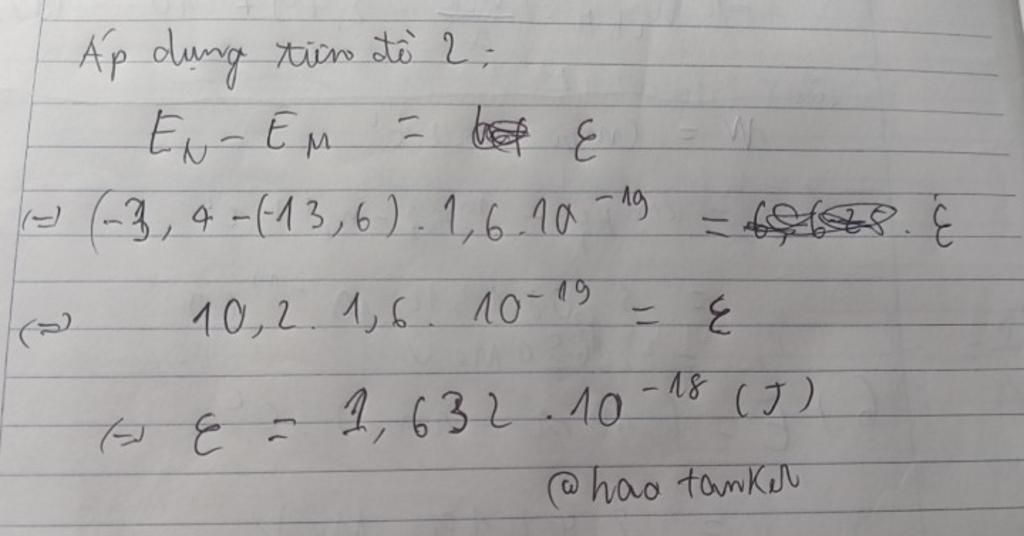 Áp dụng tiên đề 2:
E_N - E_M = ε
(=) (-3,4 - (-13,6) . 1,6 . 10^-19 = . ε
(=) 10,2 . 1,6 . 10^-19 = ε
(=) ε = 1,632 . 10^-18 (J)
@hao tanker